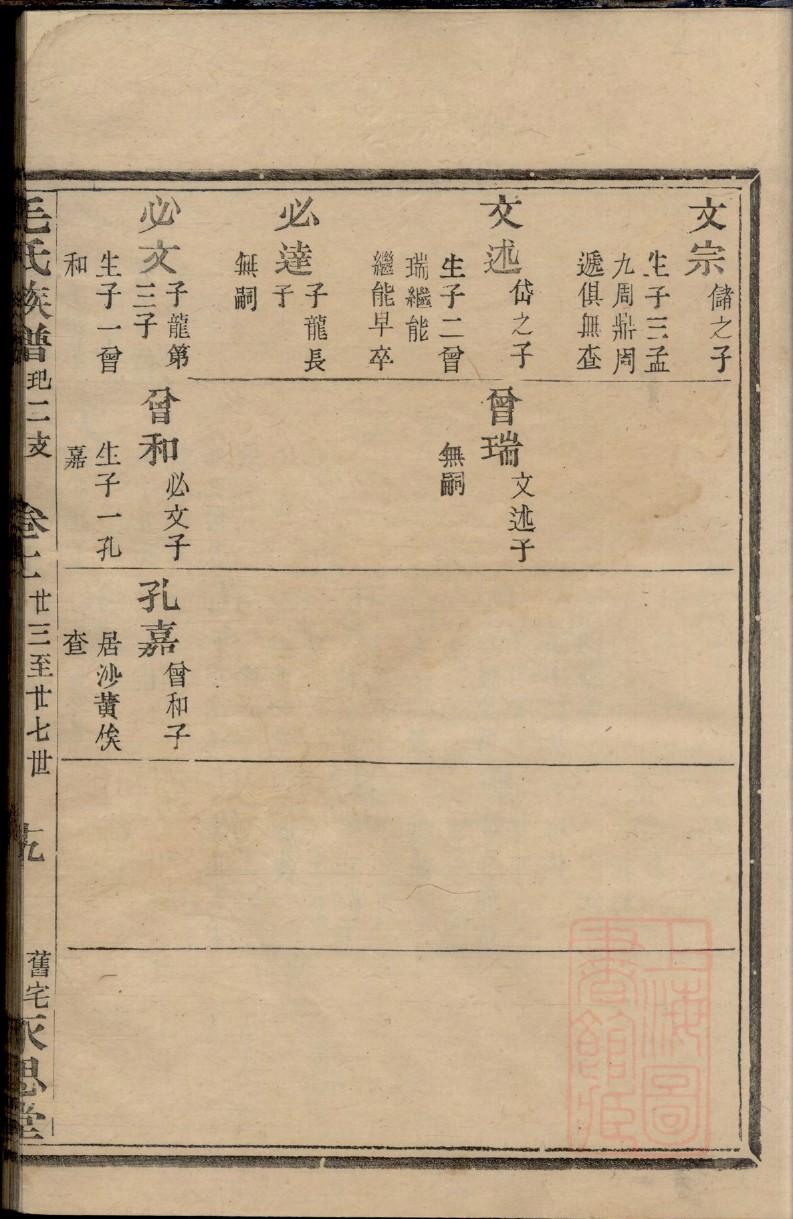 文宗
儲之子
生子三孟
九周鼎周
遞俱無查
文述
岱之子
生子二曾
瑞繼能
繼能早卒
必達
子龍長
子
無嗣
必文
子龍第
三子
生子一曾
和
曾瑞
文述子
無嗣
曾和
必文子
生子一孔
嘉
孔嘉
曾和子
居沙黄俟
查
毛氏族譜
二支
卷十
廿三至廿七世
十九
舊宅永思堂
上海圖
書館藏